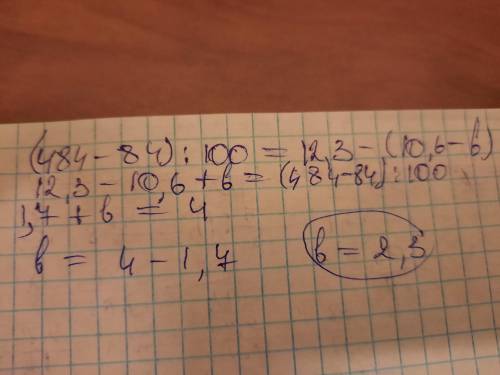 (484-84):100 = 12,3-(10,6-в)
12,3-10,6+в = (484-84):100
1,7+в = 4
в = 4-1,7
в = 2,3